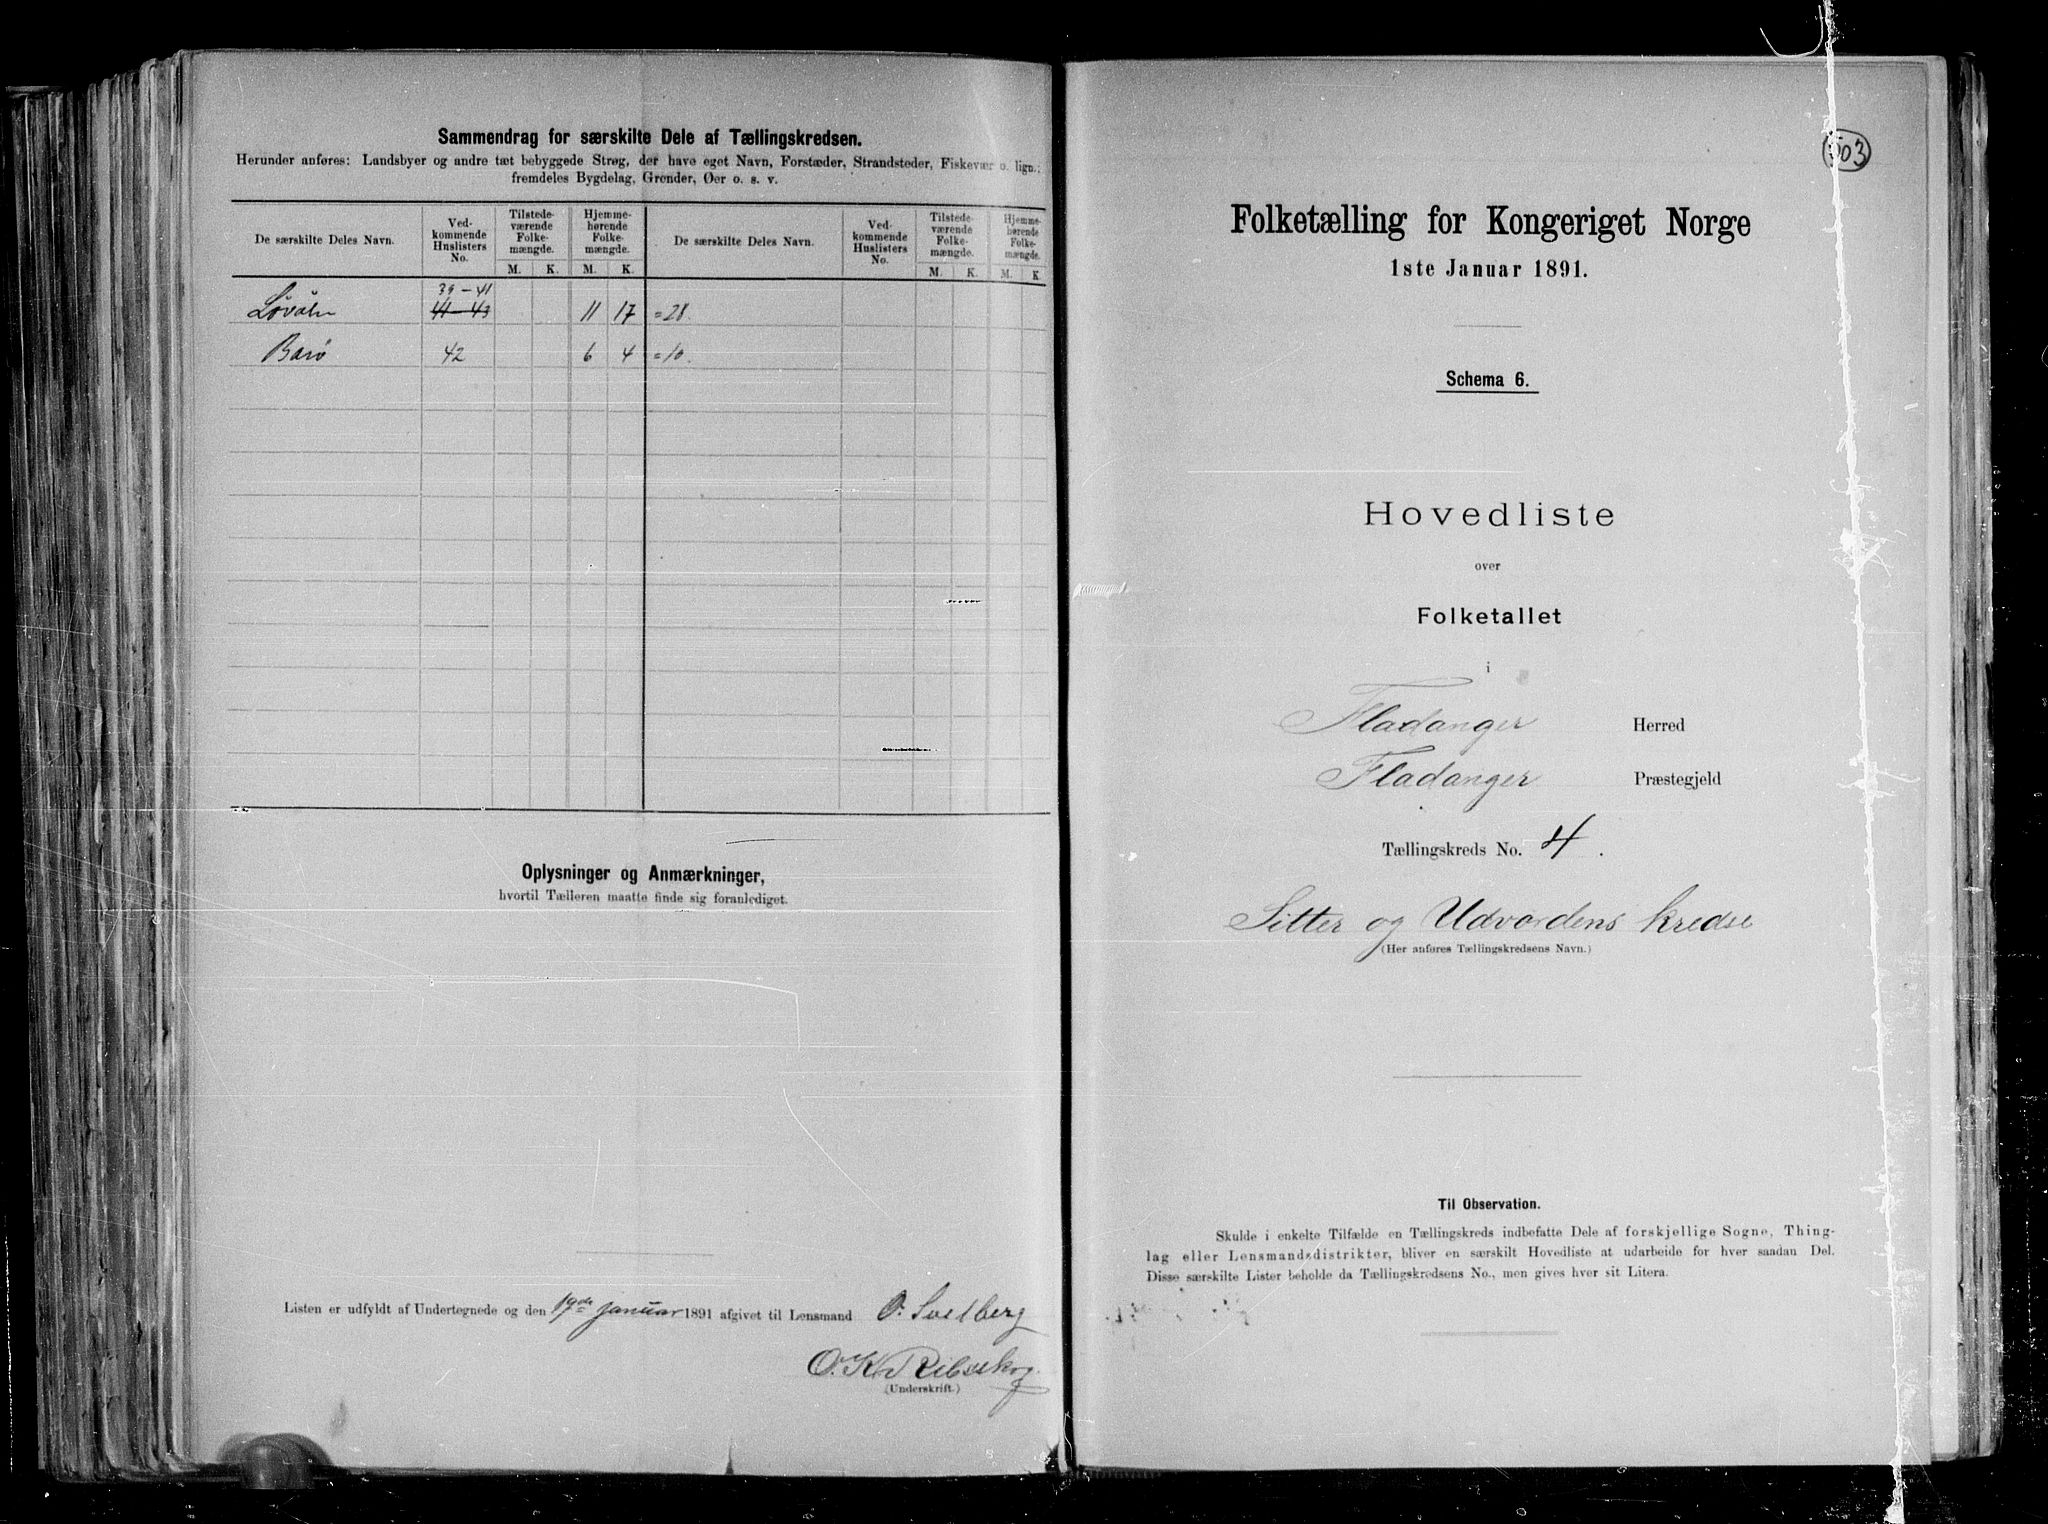 Sammendrag for særskilte Dele af Tællingskredsen.
Herunder anføres: Landsbyer og andre tæt bebyggede Strøg, der have eget Navn, Forstæder, Strandsteder, Fiskevær o. lign.;
fremdeles Bygdelag, Grender, Øer o. s. v.
De særskilte Deles Navn. Ved-kommende Huslisters No. Tilstede-værende Folke-mængde. Hjemme-hørende Folke-mængde. De særskilte Deles Navn. Ved-kommende Huslisters No. Tilstede-værende Folke-mængde. Hjemme-hørende Folke-mængde.
M. K. M. K. M. K. M. K.
39-41
Løvøen 41-43 11 17 =28.
Barø 42 6 4 =10.
Oplysninger og Anmærkninger,
hvortil Tælleren maatte finde sig foranlediget.
Listen er udfyldt af Undertegnede og den 19de januar 1891 afgivet til Lensmand O. Svedberg
O. Kr. Ribsskog.
(Underskrift.)
503
Folketælling for Kongeriget Norge
1ste Januar 1891.
Schema 6.
Hovedliste
over
Folketallet
i
Fladanger Herred
Fladanger Præstegjeld
Tællingskreds No. 4.
Sitter og Udvordens kredse
(Her anføres Tællingskredsens Navn.)
Til Observation.
Skulde i enkelte Tilfælde en Tællingskreds indbefatte Dele af forskjellige Sogne, Thing-
lag eller Lensmandsdistrikter, bliver en særskilt Hovedliste at udarbeide for hver saadan Del.
Disse særskilte Lister beholde da Tællingskredsens No., men gives hver sit Litera.